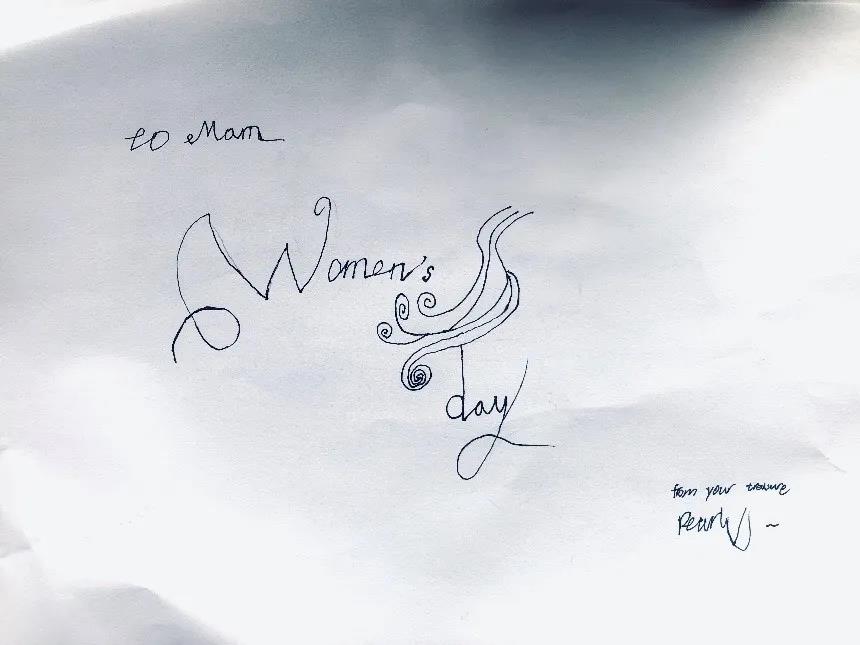 to Mam
Women's
day
from your treasure
Pearly ~